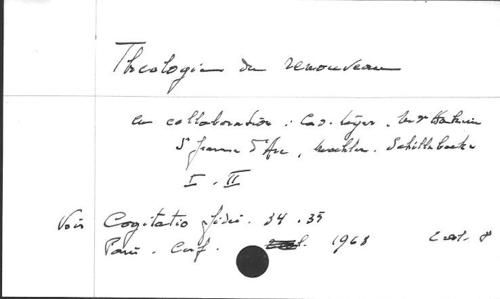 Theologie du renouveau
en collaboration : Card. Léger.
S Jeanne d'Arc, Moehler. Schillebeeckx
I. II
Voir Cogitatio fidei. 34. 35
Paris. Cerf. 1968 2 vol. 8